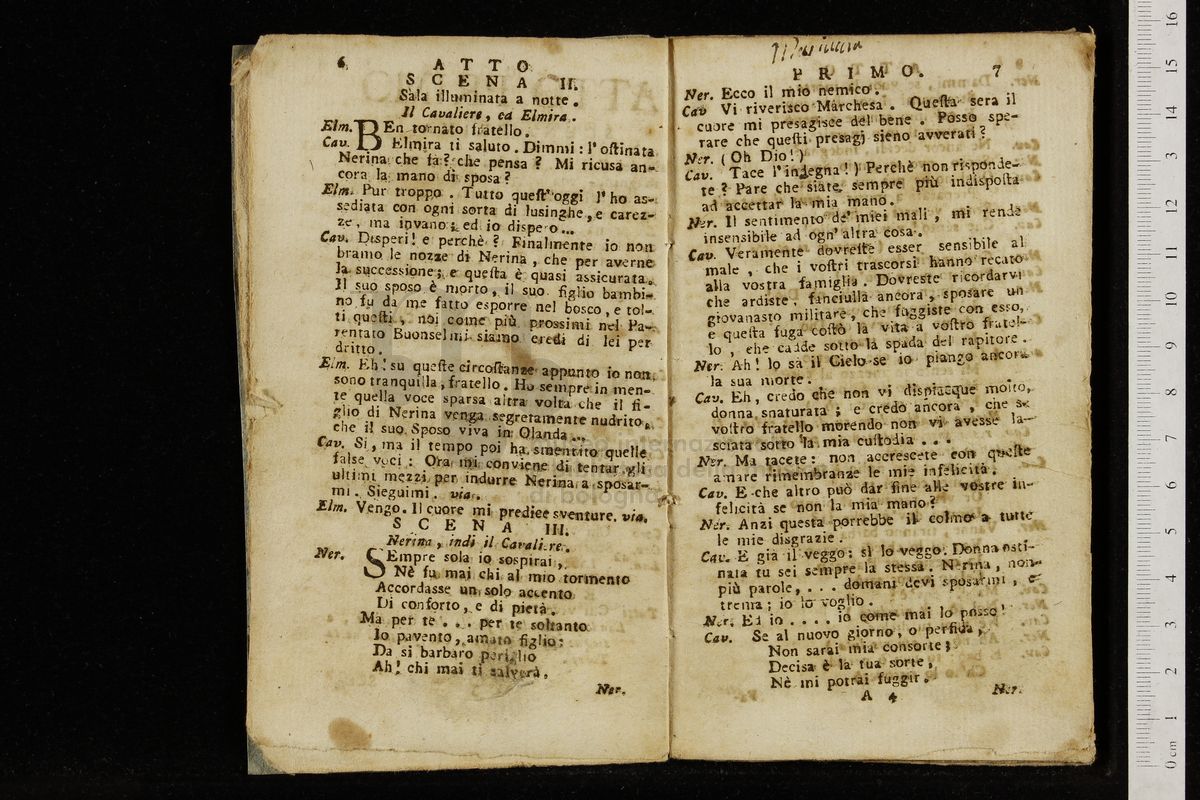 6
ATTO
SCENA II.
Sala illuminata a notte.
Il Cavaliere, ed Elmira.
Elm. BEn tornato fratello.
Cav. Elmira ti saluto. Dimmi: l'oſtinata
Nerina che fa? che pensa? Mi ricusa an-
cora la mano di sposa?
Elm. Pur troppo. Tutto queſt'oggi l'ho as-
sediata con ogni sorta di lusinghe, e carez-
ze, ma invano; ed io dispero...
Cav. Disperi! e perchè? Finalmente io non
bramo le nozze di Nerina, che per averne
la successione; e queſta è quasi assicurata.
Il suo sposo è morto, il suo figlio bambi-
no fu da me fatto esporre nel bosco, e tol-
ti queſti, noi come più prossimi nel Pa-
rentato Buonselmi siamo eredi di lei per
dritto.
Elm. Eh! su queſte circoſtanze appunto io non
sono tranquilla, fratello. Ho sempre in men-
te quella voce sparsa altra volta che il fi-
glio di Nerina venga segretamente nudrito,
che il suo Sposo viva in Olanda...
Cav. Si, ma il tempo poi ha smentito quelle
false voci: Ora mi conviene di tentar gli
ultimi mezzi per indurre Nerina a sposar-
mi. Sieguimi. via.
Elm. Vengo. Il cuore mi predice sventure. via.
SCENA III.
Nerina, indi il Cavaliere.
Ner. SEmpre sola io sospirai,
Nè fu mai chi al mio tormento
Accordasse un solo accento
Di conforto, e di pietà.
Ma per te... per te soltanto
Io pavento, amato figlio:
Da si barbaro periglio
Ah! chi mai ti salverà.
Ner.
PRIMO. 7
Ner. Ecco il mio nemico.
Cav Vi riverisco Marchesa. Queſta sera il
cuore mi presagisce del bene. Posso spe-
rare che queſti presagj sieno avverati?
Ner. (Oh Dio!)
Cav. Tace l'indegna!) Perchè non risponde-
te? Pare che siate sempre più indispoſta
ad accettar la mia mano.
Ner. Il sentimento de' miei mali, mi rende
insensibile ad ogn'altra cosa.
Cav. Veramente dovreſte esser sensibile al
male, che i voſtri trascorsi hanno recato
alla vostra famiglia. Dovreste ricordarvi
che ardiste, fanciulla ancora, sposare un
giovanasto militare, che fuggiste con esso,
e queſta fuga coſtò la vita a voſtro fratel-
lo, che cadde sotto la spada del rapitore.
Ner. Ah! lo sa il Cielo se io piango ancora
la sua morte.
Cav. Eh, credo che non vi dispiacque molto,
donna snaturata; e credo ancora, che se
voſtro fratello morendo non vi avesse la-
sciata sotto la mia cuſtodia...
Ner. Ma tacete: non accrescete con queſte
amare rimembranze le mie infelicità.
Cav. E che altro può dar fine alle vostre in-
felicità se non la mia mano?
Ner. Anzi questa porrebbe il colmo a tutte
le mie disgrazie.
Cav. E già il veggo: sì lo veggo. Donna osti-
nata tu sei sempre la stessa. Nerina, non
più parole,... domani devi sposarmi, e
trema; io lo voglio.
Ner. Ed io.... io come mai lo posso!
Cav. Se al nuovo giorno, o perfida,
Non sarai mia consorte;
Decisa è la tua sorte,
Nè mi potrai fuggir.
A 4 Ner.